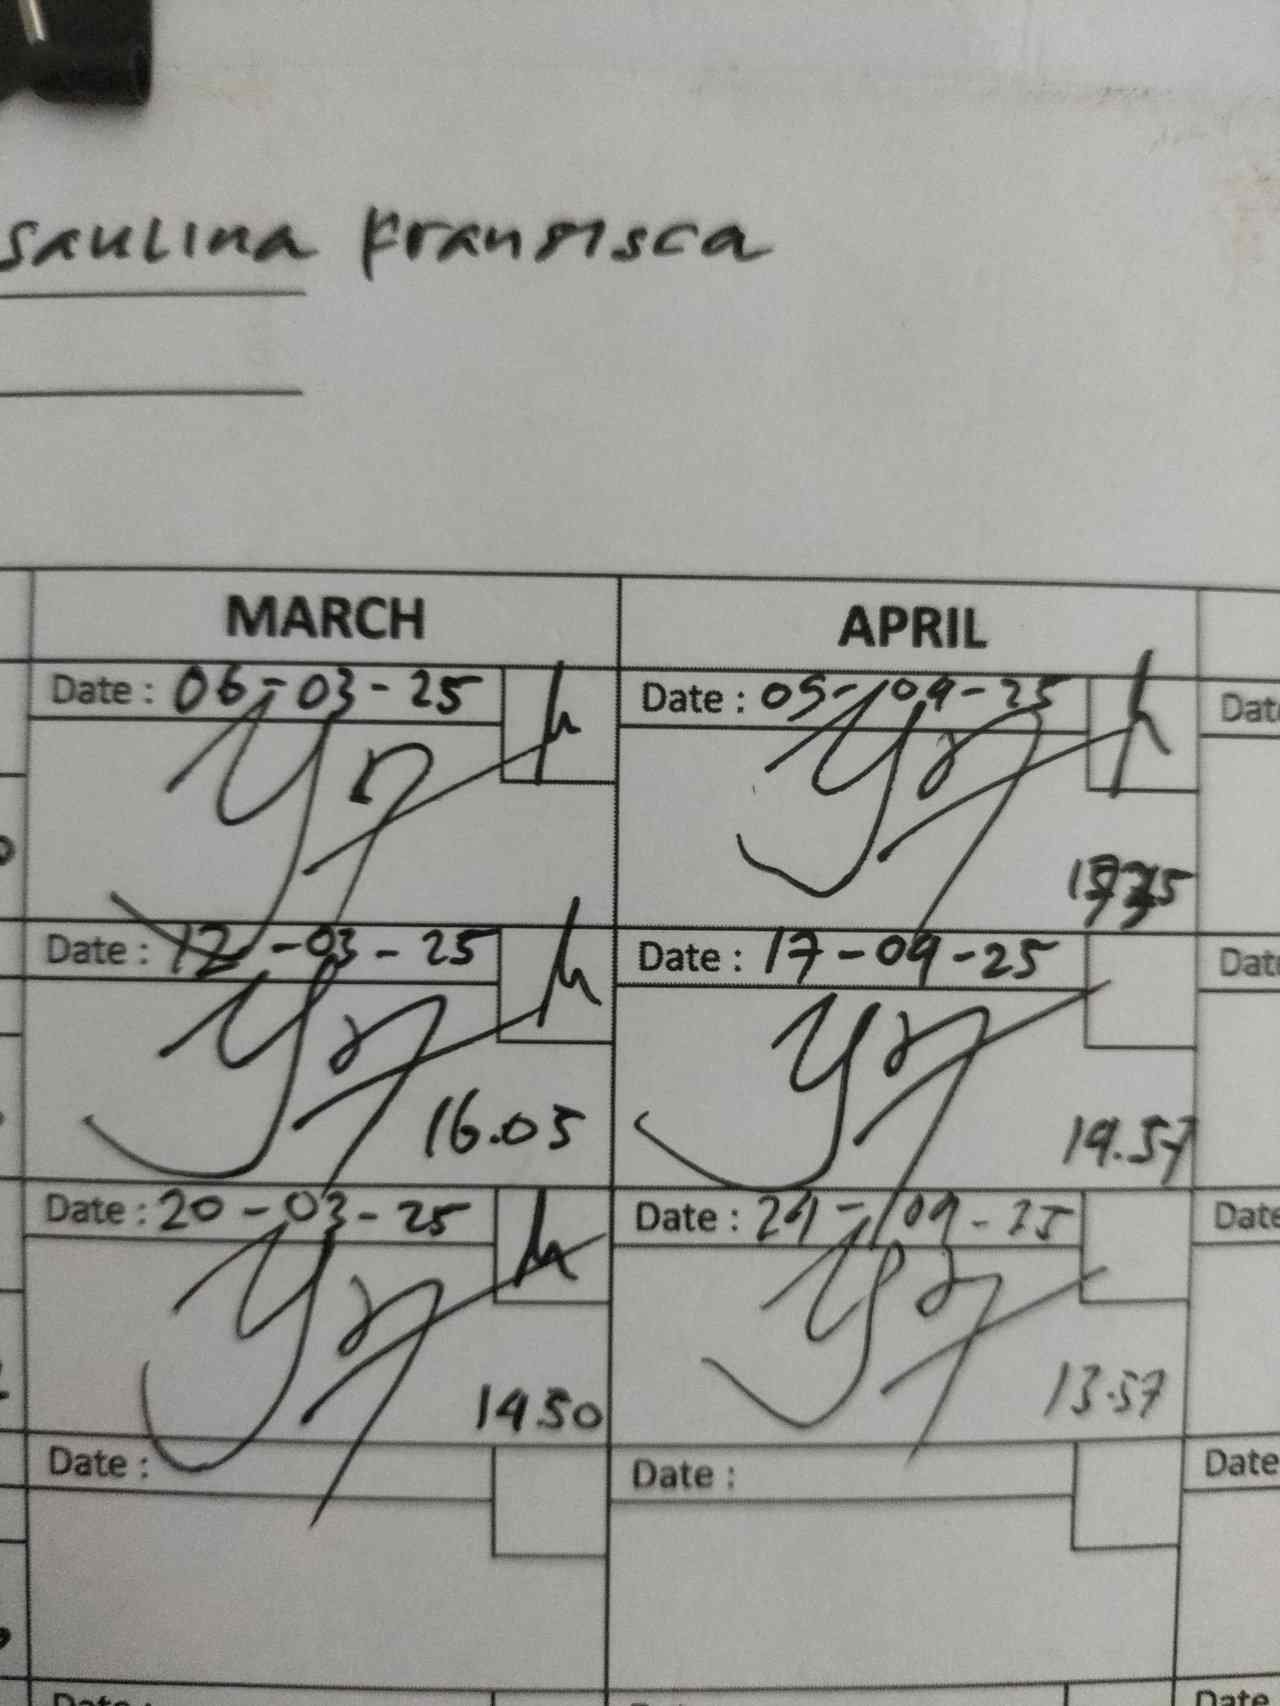 saulina Fransisca
MARCH APRIL
Date : 06-03-25 Date : 05-04-25 Date
Date : 12-03-25 Date : 17-04-25 Date
16.05 14.57
Date : 20-03-25 Date : 24-04-25 Date
1450 13.57
Date : Date : Date
Date : Date